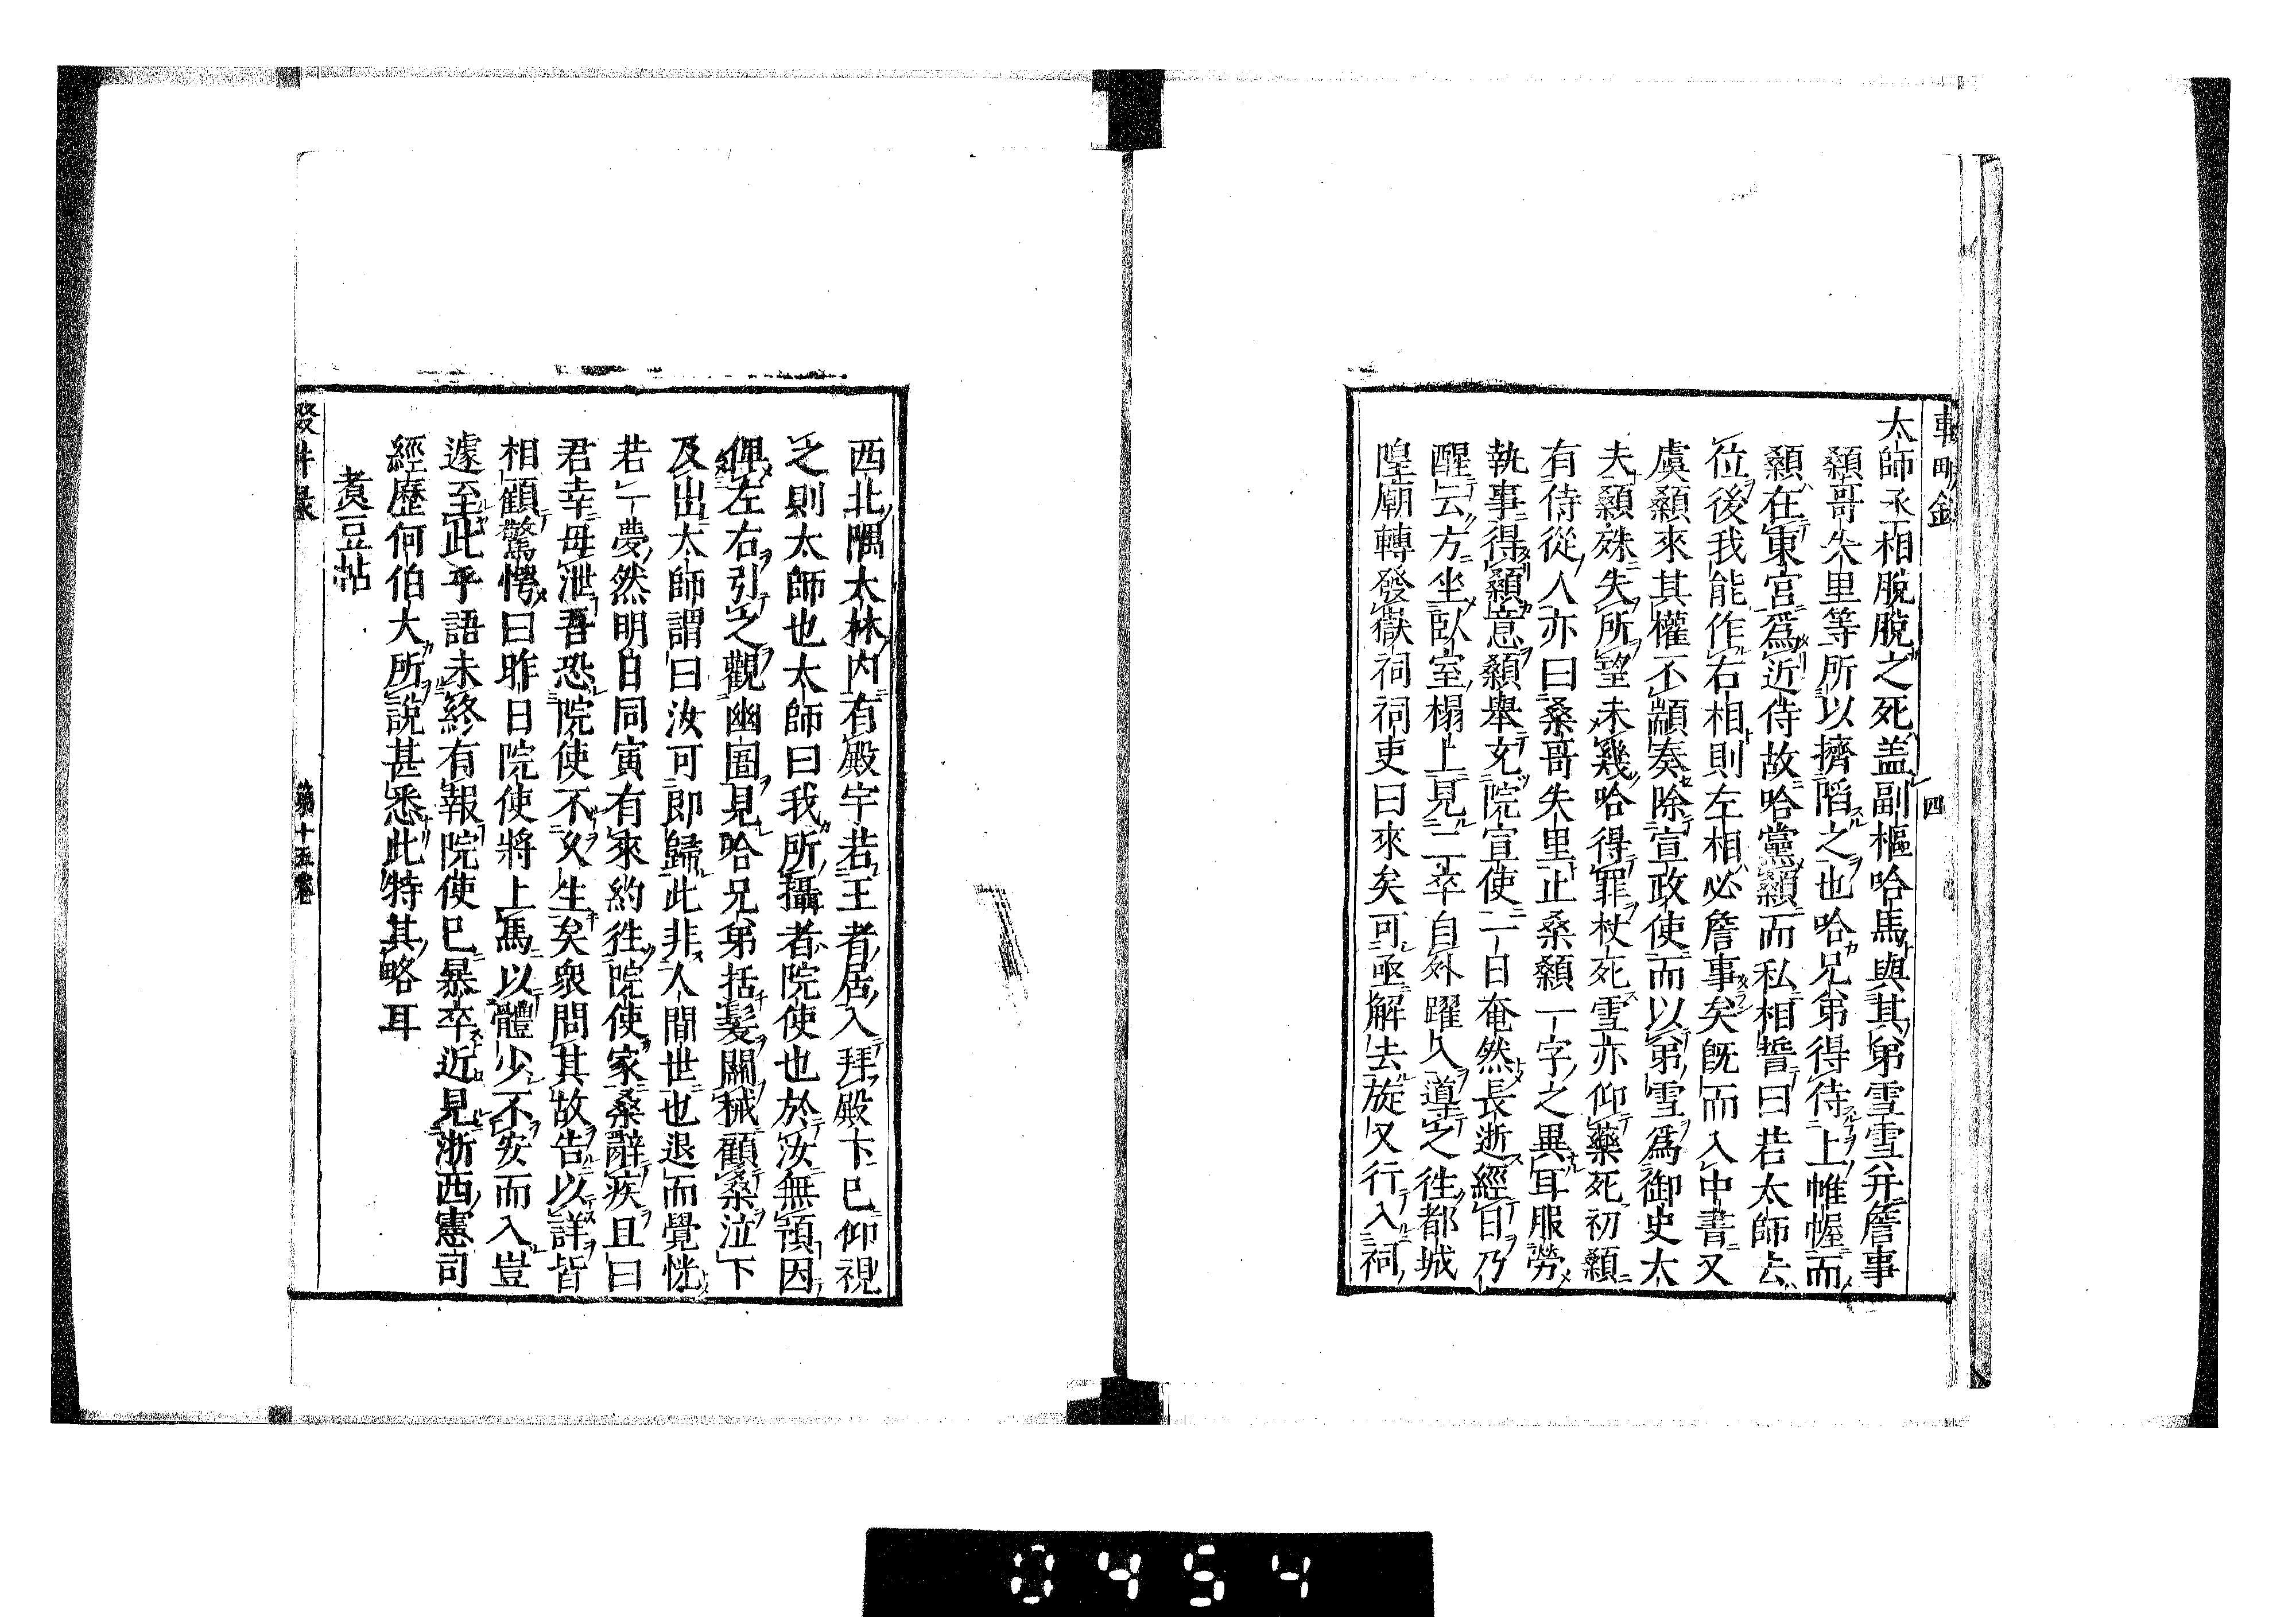 太師丞相脫脫之死盖副樞哈馬與其弟雪雪并詹事
顙哥失里等所以擠陷之也哈兄弟得侍上帷幄而
顙在東宮爲近侍故哈黨顙而私相誓曰若太師去
位後我能作右相則左相必詹事矣旣而入中書又
虞顙來其權不顓奏除宣政使而以弟雪爲御史大
夫顙殊失所望未幾哈得罪杖死雪亦仰藥死初顙
有侍從人亦曰桑哥失里止桑顙一字之異耳服勞
執事得顙意顙舉充院宣使二日奄然長逝經日乃
醒云方坐臥室榻上見二卒自外躍入導之徃都城
隍廟轉發嶽祠祠吏曰來矣可亟解去旋又行入祠
四
西北隅太林内有殿宇若王者居入拜殿下已仰視
之則太師也太師曰我所攝者院使也於汝無預因
俾左右引之觀幽圄見哈兄弟括髮關械顧桑泣下
及出太師謂曰汝可即歸此非人間世也退而覺恍
若一夢然明白同寅有來約徃院使家桑辭疾且曰
君幸毋泄吾恐院使不久生矣衆問其故告以詳皆
相顧驚愕曰昨日院使將上馬以體少不安而入豈
遽至此乎語未終有報院使已暴卒近見浙西憲司
經歷何伯大所說甚悉此特其略耳
煑豆帖
第十五卷
0454